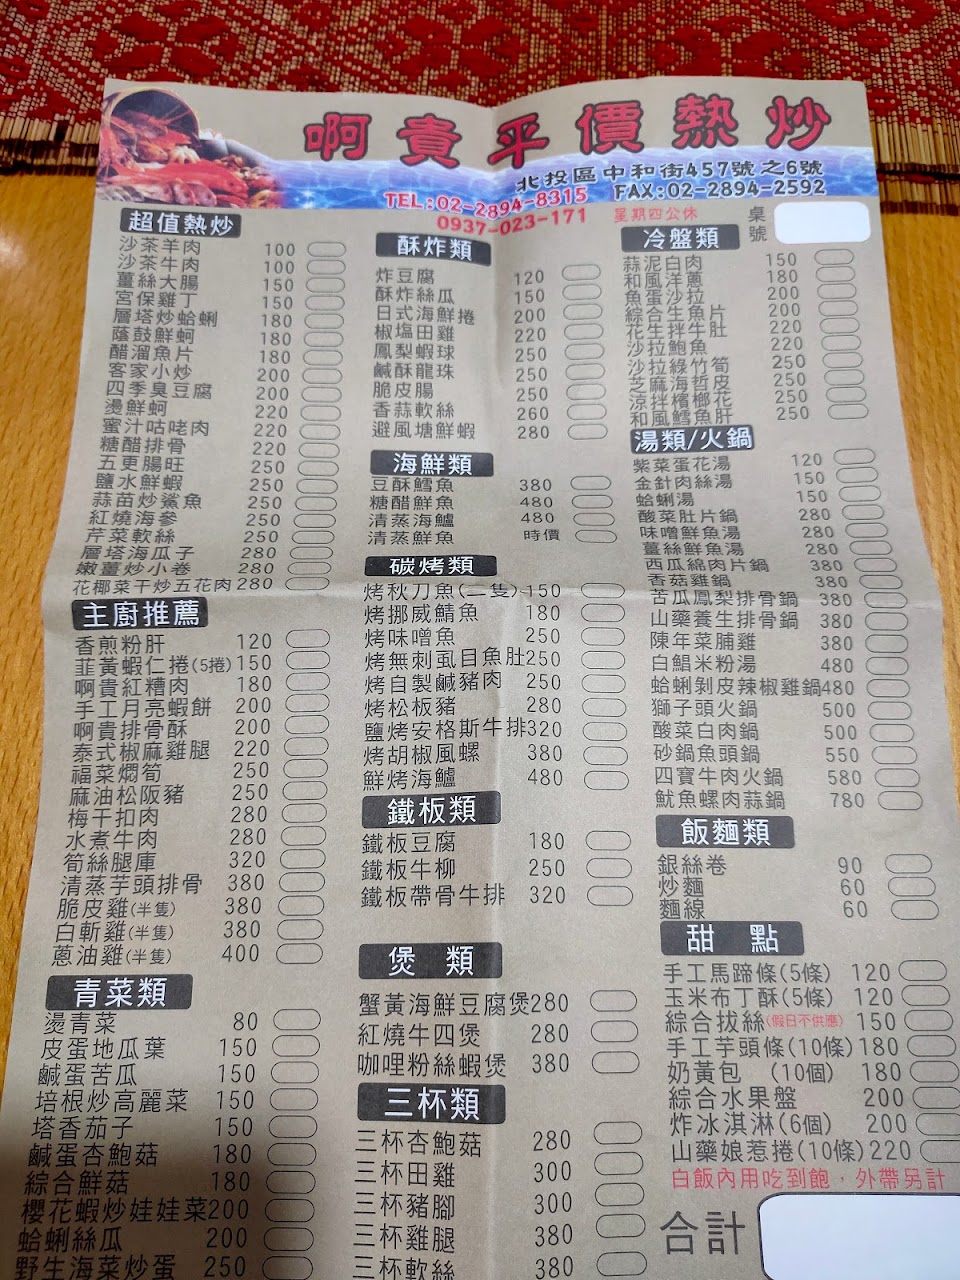 啊貴平價熱炒
北投區中和街457號之6號
TEL:02-2894-8315 FAX:02-2894-2592
0937-023-171 星期四公休
桌號
超值熱炒
沙茶羊肉 100
沙茶牛肉 100
薑絲大腸 150
宮保雞丁 150
層塔炒蛤蜊 180
蔭鼓鮮蚵 180
醋溜魚片 180
客家小炒 200
四季臭豆腐 200
燙鮮蚵 220
蜜汁咕咾肉 220
糖醋排骨 220
五更腸旺 250
鹽水鮮蝦 250
蒜苗炒鯊魚 250
紅燒海參 250
芹菜軟絲 250
層塔海瓜子 280
嫩薑炒小卷 280
花椰菜干炒五花肉 280
主廚推薦
香煎粉肝 120
韮黃蝦仁捲(5捲) 150
啊貴紅糟肉 180
手工月亮蝦餅 200
啊貴排骨酥 200
泰式椒麻雞腿 220
福菜燜筍 250
麻油松阪豬 250
梅干扣肉 280
水煮牛肉 280
筍絲腿庫 320
清蒸芋頭排骨 380
脆皮雞(半隻) 380
白斬雞(半隻) 380
蔥油雞(半隻) 400
青菜類
燙青菜 80
皮蛋地瓜葉 150
鹹蛋苦瓜 150
培根炒高麗菜 150
塔香茄子 150
鹹蛋杏鮑菇 180
綜合鮮菇 180
櫻花蝦炒娃娃菜 200
蛤蜊絲瓜 200
野生海菜炒蛋 250
酥炸類
炸豆腐 120
酥炸絲瓜 150
日式海鮮捲 200
椒塩田雞 220
鳳梨蝦球 250
鹹酥龍珠 250
脆皮腸 250
香蒜軟絲 260
避風塘鮮蝦 280
海鮮類
豆酥鱈魚 380
糖醋鮮魚 480
清蒸海鱸 480
清蒸鮮魚 時價
碳烤類
烤秋刀魚(二隻) 150
烤挪威鯖魚 180
烤味噌魚 250
烤無刺虱目魚肚 250
烤自製鹹豬肉 250
烤松板豬 280
鹽烤安格斯牛排 320
烤胡椒風螺 380
鮮烤海鱸 480
鐵板類
鐵板豆腐 180
鐵板牛柳 250
鐵板帶骨牛排 320
煲 類
蟹黃海鮮豆腐煲 280
紅燒牛四煲 280
咖哩粉絲蝦煲 380
三杯類
三杯杏鮑菇 280
三杯田雞 300
三杯豬腳 300
三杯雞腿 380
三杯軟絲 380
冷盤類
蒜泥白肉 150
和風洋蔥 180
魚蛋沙拉 200
綜合生魚片 200
花生拌牛肚 220
沙拉鮑魚 220
沙拉綠竹筍 250
芝麻海哲皮 250
涼拌檳榔花 250
和風鱈魚肝 250
湯類/火鍋
紫菜蛋花湯 120
金針肉絲湯 150
蛤蜊湯 150
酸菜肚片鍋 280
味噌鮮魚湯 280
薑絲鮮魚湯 280
西瓜綿肉片鍋 380
香菇雞鍋 380
苦瓜鳳梨排骨鍋 380
山藥養生排骨鍋 380
陳年菜脯雞 380
白鯧米粉湯 480
蛤蜊剝皮辣椒雞鍋 480
獅子頭火鍋 500
酸菜白肉鍋 500
砂鍋魚頭鍋 550
四寶牛肉火鍋 580
魷魚螺肉蒜鍋 780
飯麵類
銀絲卷 90
炒麵 60
麵線 60
甜 點
手工馬蹄條(5條) 120
玉米布丁酥(5條) 120
綜合拔絲(假日不供應) 150
手工芋頭條(10條) 180
奶黃包 (10個) 180
綜合水果盤 200
炸冰淇淋(6個) 200
山藥娘惹捲(10條) 220
白飯內用吃到飽，外帶另計
合計